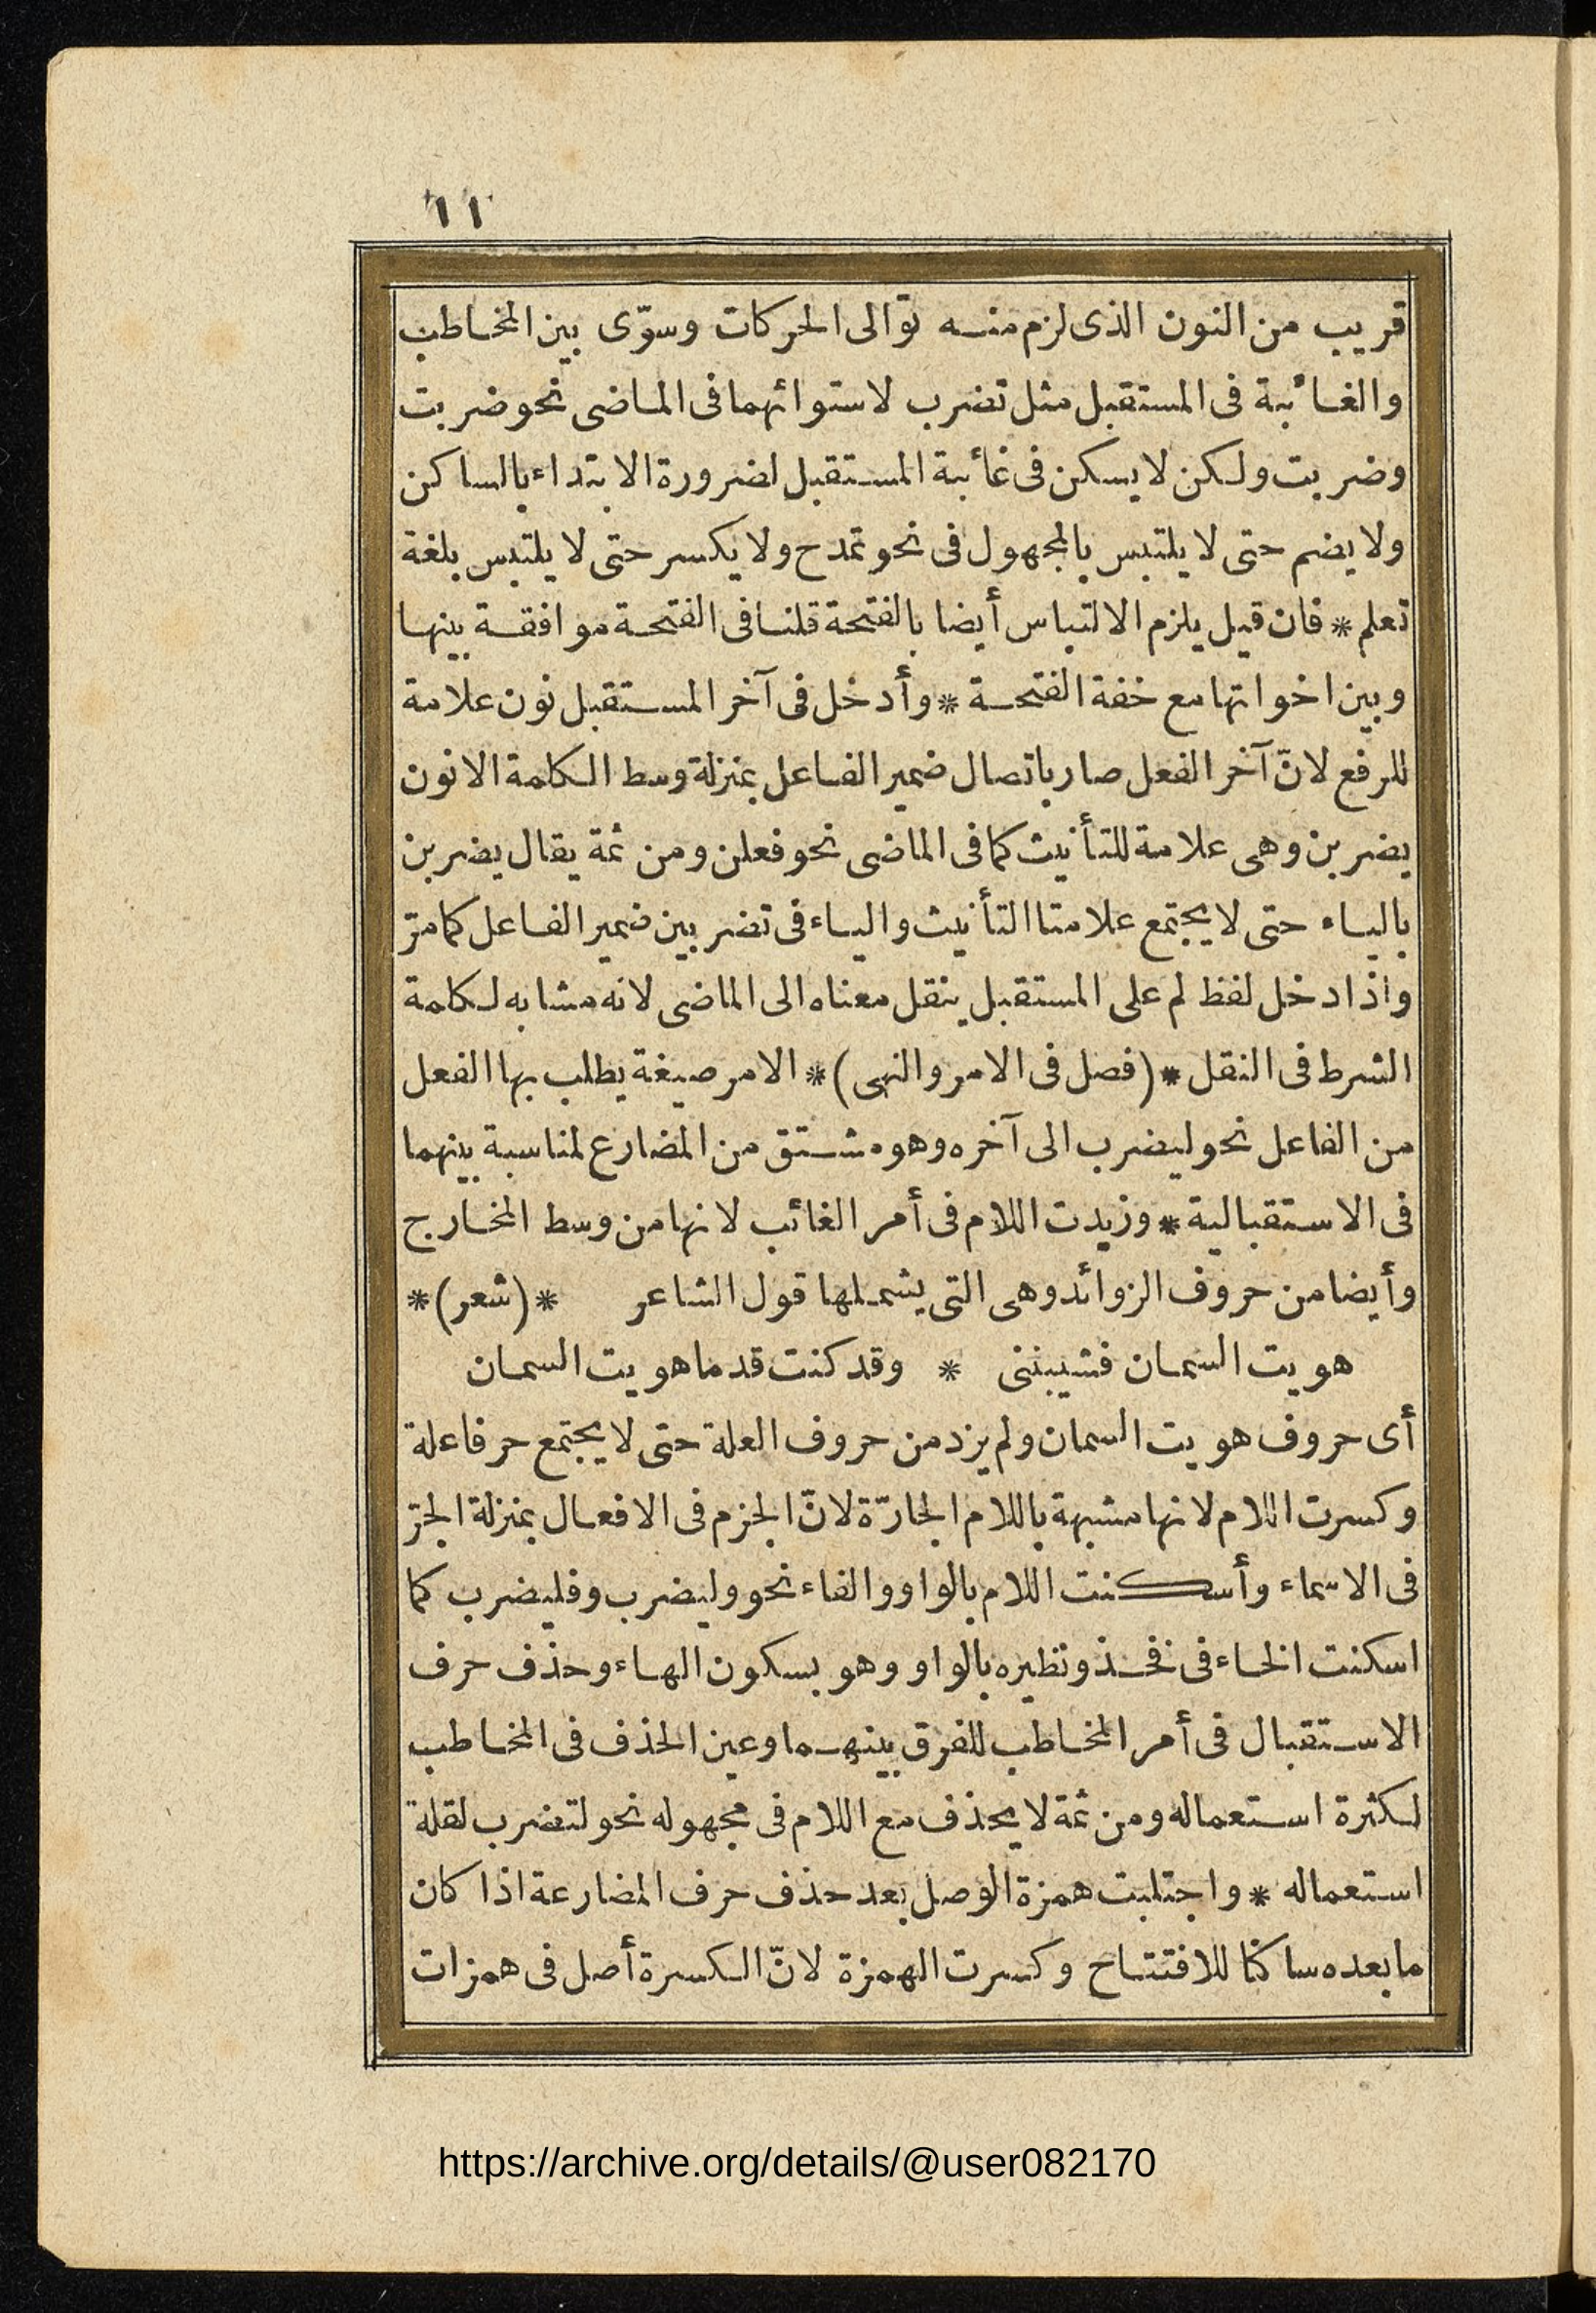 ١١
قريب من النون الذى لزم منه توالى الحركات وسوّى بين المخاطب
والغائبة فى المستقبل مثل تضرب لاستوائهما فى الماضى نحو ضربت
وضربت ولكن لا يسكن فى غائبة المستقبل لضرورة الابتداء بالساكن
ولا يضم حتى لا يلتبس بالمجهول فى نحو تمدح ولا يكسر حتى لا يلتبس بلغة
تعلم * فان قيل يلزم الالتباس أيضا بالفتحة قلنا فى الفتحة موافقة بينها
وبين اخواتها مع خفة الفتحة * وأدخل فى آخر المستقبل نون علامة
للرفع لانّ آخر الفعل صار باتصال ضمير الفاعل بمنزلة وسط الكلمة الا نون
يضربن وهى علامة للتأنيث كما فى الماضى نحو فعلن ومن ثمة يقال يضربن
بالياء حتى لا يجتمع علامتا التأنيث والياء فى تضربين ضمير الفاعل كما مرّ
واذا دخل لفظ لم على المستقبل ينقل معناه الى الماضى لانه مشابه لكلمة
الشرط فى النقل *(فصل فى الامر والنهى)* الامر صيغة يطلب بها الفعل
من الفاعل نحو ليضرب الى آخره وهو مشتق من المضارع لمناسبة بينهما
فى الاستقبالية * وزيدت اللام فى أمر الغائب لانها من وسط المخارج
وأيضا من حروف الزوائد وهى التى يشملها قول الشاعر *(شعر)*
هويت السمان فشيبننى * وقد كنت قدما هويت السمان
أى حروف هويت السمان ولم يزد من حروف العلة حتى لا يجتمع حرفا علة
وكسرت اللام لانها مشبهة باللام الجارّة لانّ الجزم فى الافعال بمنزلة الجرّ
فى الاسماء وأسكنت اللام بالواو والفاء نحو وليضرب وفليضرب كما
اسكنت الخاء فى فخذ ونظيره بالواو وهو بسكون الهاء وحذف حرف
الاستقبال فى أمر المخاطب للفرق بينهما وعين الحذف فى المخاطب
لكثرة استعماله ومن ثمة لا يحذف مع اللام فى مجهوله نحو لتضرب لقلة
استعماله * واجتلبت همزة الوصل بعد حذف حرف المضارعة اذا كان
ما بعده ساكنا للافتتاح وكسرت الهمزة لانّ الكسرة أصل فى همزات
https://archive.org/details/@user082170